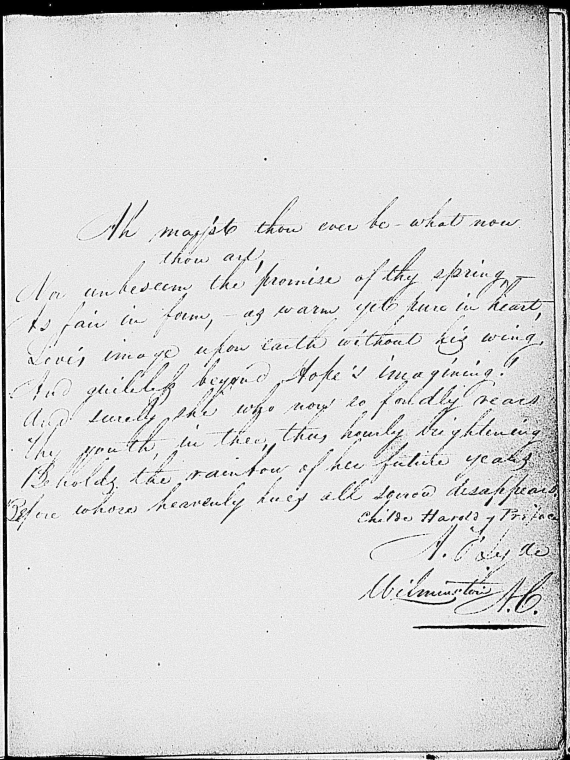 Ah may'st thou ever be - what now
thou art,
Nor unbeseem the promise of thy spring,
As fair in form, - as warm yet pure in heart,
Love's image upon earth without his wing,
And guileless beyond Hope's imagining!
And surely she who now so fondly rears
Thy youth, in thee, thus hourly brightening
Beholds the rainbow of her future years
Before whose heavenly hues all sorrow disappears.
Childe Harold
A.
Wilmington N.C.